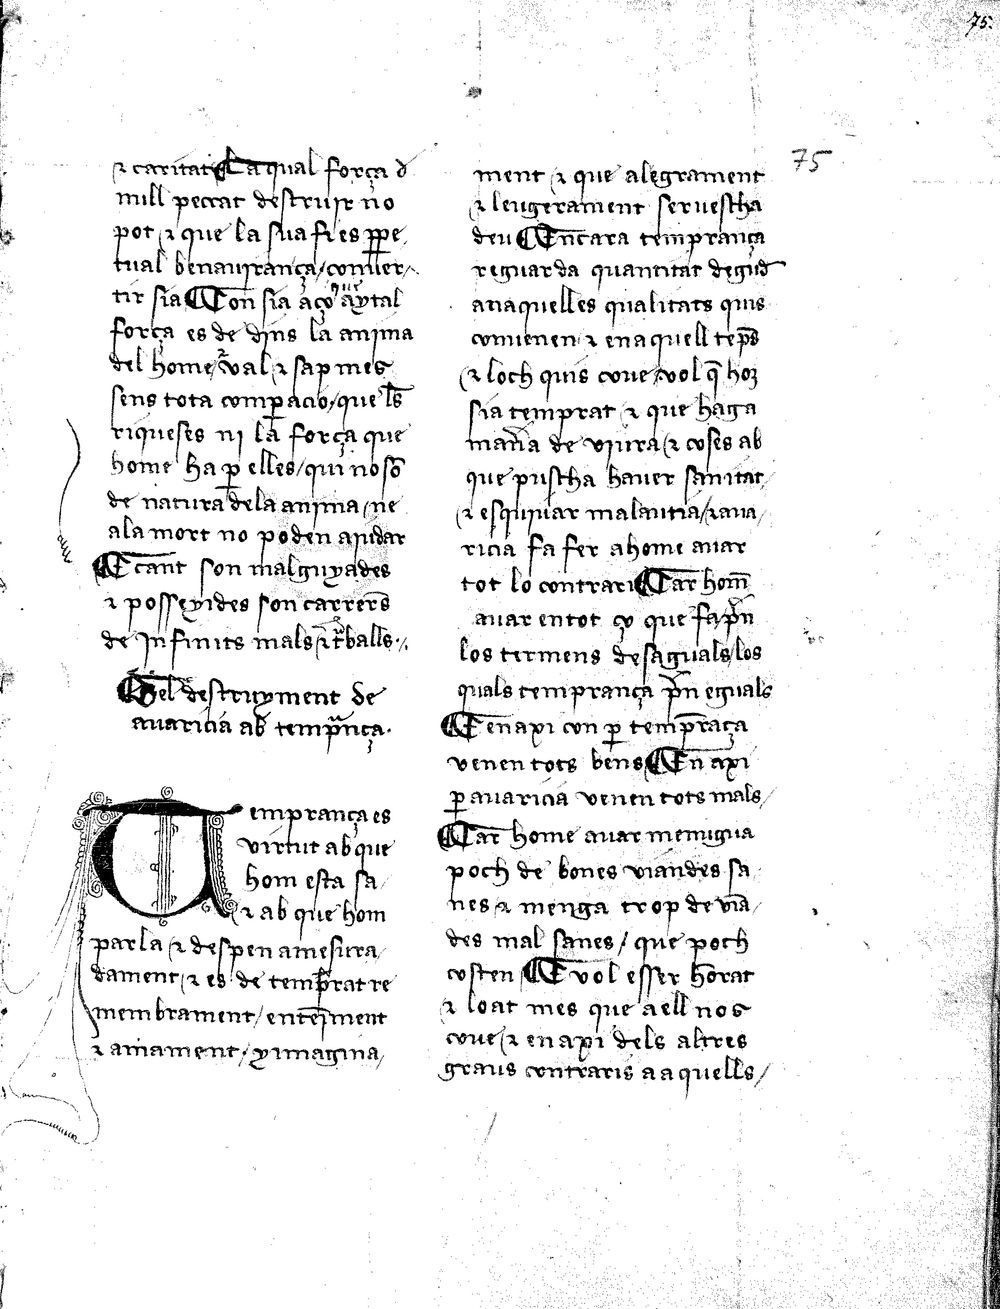 75.
75
⁊ caritat La qual força d
null peccat destruir no
pot ⁊ que la sua fi es ꝑpe
tual benauirança/ conuer/
tir sia Con sia aço que aytal
força es de dins la anima
del home/ ⁊ val ⁊ sap mes
sens tota comꝑacio/ que les
riqueses ni la força que
home ha ꝑ elles/ qui no so
de natura de la anima/ ne
a la mort no poden aiudar
E cant son mal guyades
⁊ posseyides son carreres
de infinits mals ⁊ treballs./.
Del destruyment de
auaricia ab tempança.
Temprança es
virtut ab que
hom esta sa/
⁊ ab que hom
parla ⁊ despen amesura/
dament ⁊ es de temprat re
membrament/ enteniment
⁊ amament. y imagina/
ment ⁊ que alegrament
⁊ leugerament seruescha
deu Encara temprança
reguarda quantitat deguda
an aquelles qualitats quis
conuenen ⁊ en aquell teps
⁊ loch quis coue/ vol que hom
sia temprat ⁊ que haga
mana de viura ⁊ coses ab
que puscha hauer sanitat/
⁊ esquiuar malautia/ ⁊ aua/
ricia fa fer a home auar
tot lo contrari Car hom
auar en tot ço que fa pren
los termens desaguals/ los
quals temprança pren eguals
E enaxi con ꝑ tempraça
venen tots bens En axi
ꝑ auaricia venen tots mals/
Car home auar menugua
poch de bones viandes sa/
nes ⁊ menga trop de via/
des mal sanes/ que poch
costen E vol esser honrat
⁊ loat mes que a ell nos
coue/ ⁊ en axi dels altres
graus contraris a aquells/